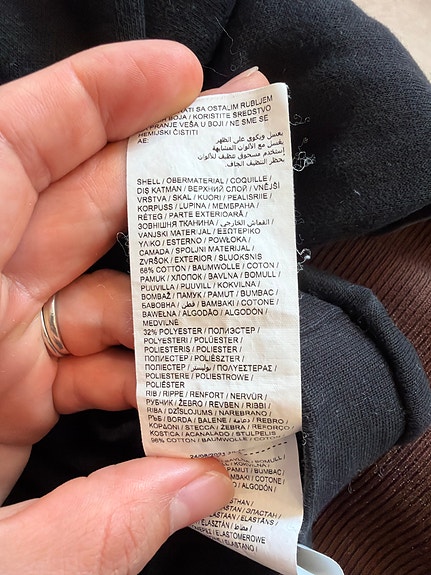 ATI SA OSTALIM RUBLJEM
BOJA / KORISTITE SREDSTVO
PRANJE VEŠA U BOJI / NE SME SE
HEMIJSKI ČISTITI
AE:
يغسل ويكوى على الظهر
يغسل مع الألوان المشابهة
إستخدم مسحوق تنظيف للألوان
يحظر التنظيف الجاف.
SHELL / OBERMATERIAL / COQUILLE /
DIŞ KATMAN / ВЕРХНИЙ СЛОЙ / VNĚJŠÍ
VRSTVA / SKAL / KUORI / PEALISRIIE /
KORPUSS / LUPINA / МЕМБРАНА /
RÉTEG / PARTE EXTERIOARĂ /
ЗОВНІШНЯ ТКАНИНА / القماش الخارجي /
VANJSKI MATERIJAL / ΕΞΩΤΕΡΙΚΟ
ΥΛΙΚΟ / ESTERNO / POWŁOKA /
CAMADA / SPOLJNI MATERIJAL /
ZVRŠOK / EXTERIOR / SLUOKSNIS
68% COTTON / BAUMWOLLE / COTON /
PAMUK / ХЛОПОК / BAVLNA / BOMULL /
PUUVILLA / PUUVILL / KOKVILNA /
BOMBAŽ / ПАМУК / PAMUT / BUMBAC /
БАВОВНА / قطن / ΒΑΜΒΑΚΙ / COTONE /
BAWEŁNA / ALGODÃO / ALGODÓN /
MEDVILNĖ
32% POLYESTER / ПОЛИЭСТЕР /
POLYESTERI / POLÜESTER /
POLIESTERIS / POLIESTER /
ПОЛИЕСТЕР / POLIÉSZTER /
ПОЛІЕСТЕР / بوليستر / ΠΟΛΥΕΣΤΕΡΑΣ /
POLIESTERE / POLIESTROWE /
POLIÉSTER
RIB / RIPPE / RENFORT / NERVÜR /
РУБЧИК / ŽEBRO / REVBEN / RIBBI /
RIBA / DZĪSLOJUMS / NAREBRANO /
РЪБ / BORDA / BALENE / دعامة / REBRO /
ΚΟΡΔΟΝΙ / STECCA / ŻEBRA / REFORÇO /
KOSTICA / ACANALADO / STULPELIS
96% COTTON / BAUMWOLLE / COTON
BOMULL /
KOKVILNA /
PAMUT / BUMBAC /
ΒΑΜΒΑΚΙ / COTONE /
ALGODÓN /
ЭЛАСТАН /
ELASTAAN / ELASTĀNS /
ELASZTÁN / مطاط /
ELASTOMEROWE
ELASTANO /